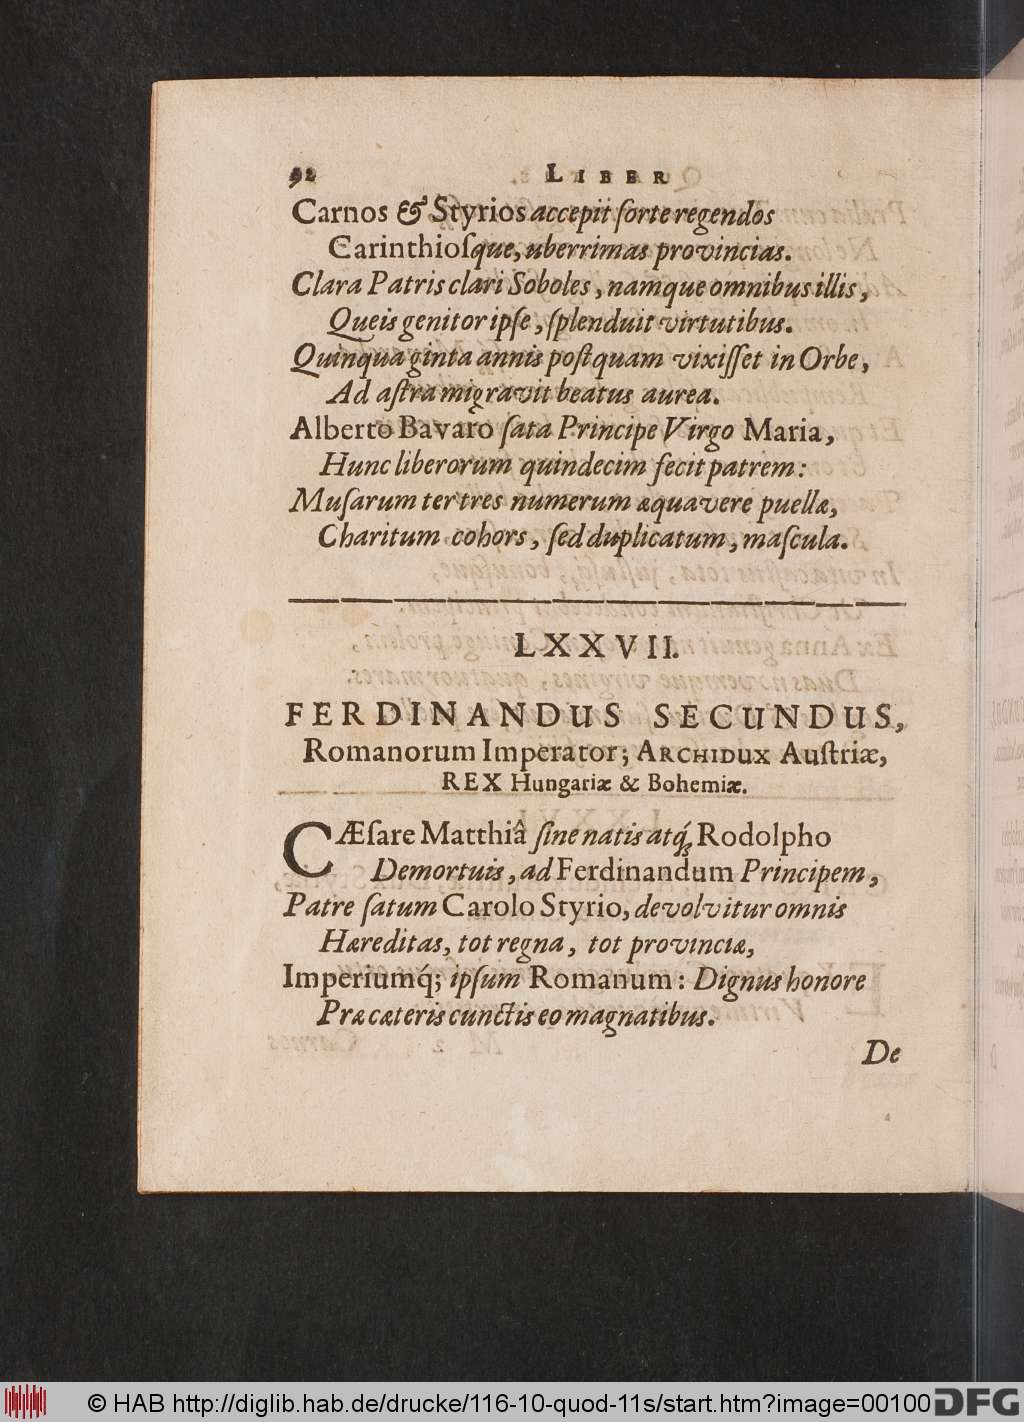 92 LIBER
Carnos & Styrios accepit ſorte regendos
Carinthioſque, uberrimas provincias.
Clara Patris clari Soboles, namque omnibus illis,
Queis genitor ipſe, ſplenduit virtutibus.
Quinquaginta annis poſtquam vixiſſet in Orbe,
Ad aſtra migravit beatus aurea.
Alberto Bavaro ſata Principe Virgo Maria,
Hunc liberorum quindecim fecit patrem:
Muſarum ter tres numerum æquavere puellæ,
Charitum cohors, ſed duplicatum, maſcula.
LXXVII.
FERDINANDUS SECUNDUS,
Romanorum Imperator; ARCHIDUX Auſtriæ,
REX Hungariæ & Bohemiæ.
CÆſare Matthiâ ſine natis atq́; Rodolpho
Demortuis, ad Ferdinandum Principem,
Patre ſatum Carolo Styrio, devolvitur omnis
Hæreditas, tot regna, tot provinciæ,
Imperiumq́; ipſum Romanum: Dignus honore
Præ cæteris cunctis eo magnatibus.
De
© HAB http://diglib.hab.de/drucke/116-10-quod-11s/start.htm?image=00100 DFG